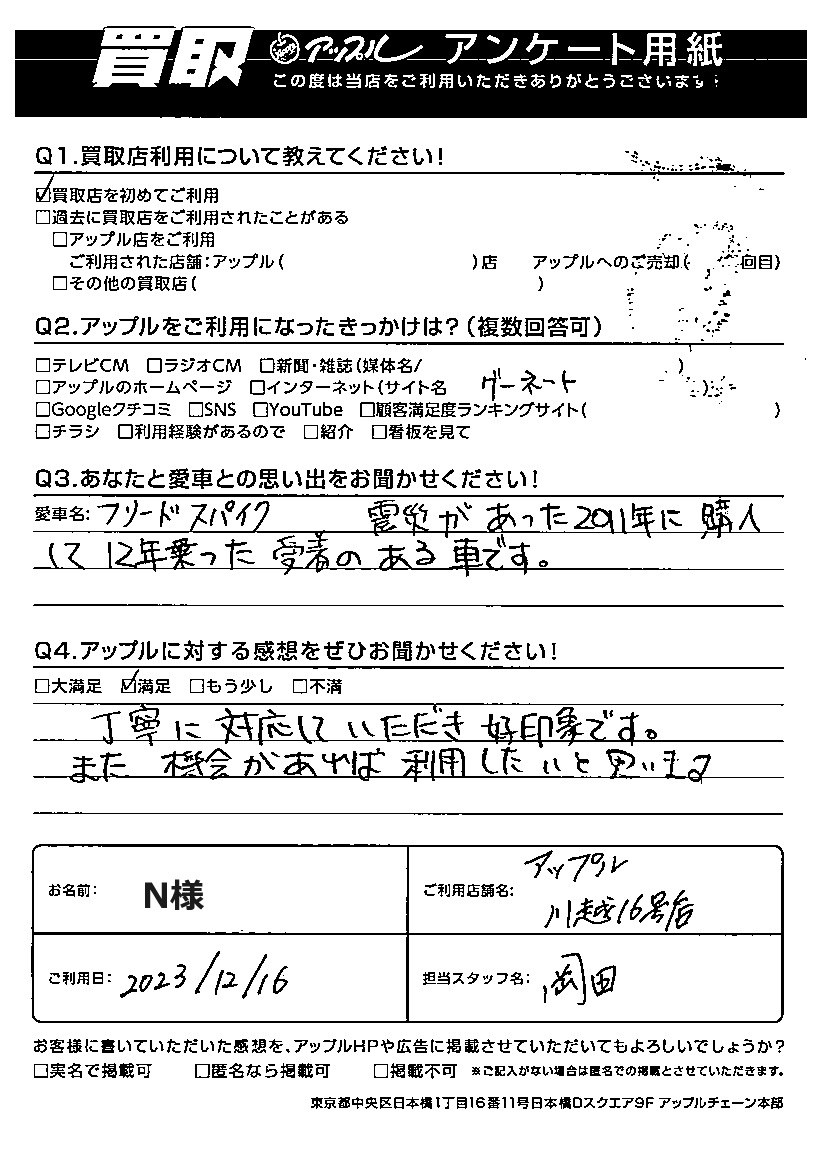 買取 アップル アンケート用紙
この度は当店をご利用いただきありがとうございます!
Q1.買取店利用について教えてください!
☑買取店を初めてご利用
□過去に買取店をご利用されたことがある
□アップル店をご利用
ご利用された店舗:アップル( )店 アップルへのご売却( 回目)
□その他の買取店( )
Q2.アップルをご利用になったきっかけは?(複数回答可)
□テレビCM □ラジオCM □新聞・雑誌(媒体名/ )
□アップルのホームページ □インターネット(サイト名 グーネット )
□Googleクチコミ □SNS □YouTube □顧客満足度ランキングサイト( )
□チラシ □利用経験があるので □紹介 □看板を見て
Q3.あなたと愛車との思い出をお聞かせください!
愛車名:フリードスパイク 震災があった2011年に購入
して12年乗った愛着のある車です。
Q4.アップルに対する感想をぜひお聞かせください!
□大満足 ☑満足 □もう少し □不満
丁寧に対応していただき好印象です。
また機会があれば利用したいと思います
お名前: N様
ご利用店舗名: アップル
川越16号店
ご利用日: 2023/12/16
担当スタッフ名: 岡田
お客様に書いていただいた感想を、アップルHPや広告に掲載させていただいてもよろしいでしょうか?
□実名で掲載可 □匿名なら掲載可 □掲載不可 ※ご記入がない場合は匿名での掲載とさせていただきます。
東京都中央区日本橋1丁目16番11号日本橋Dスクエア9F アップルチェーン本部